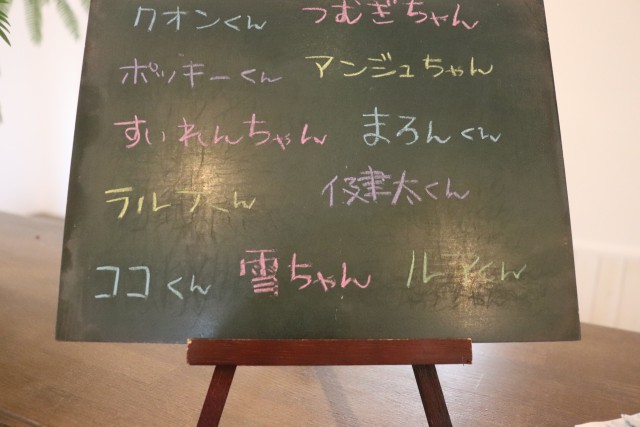 クオンくん つむぎちゃん
ポッキーくん マンジュちゃん
すいれんちゃん まろんくん
ラルフくん 健太くん
ココくん 雪ちゃん くん